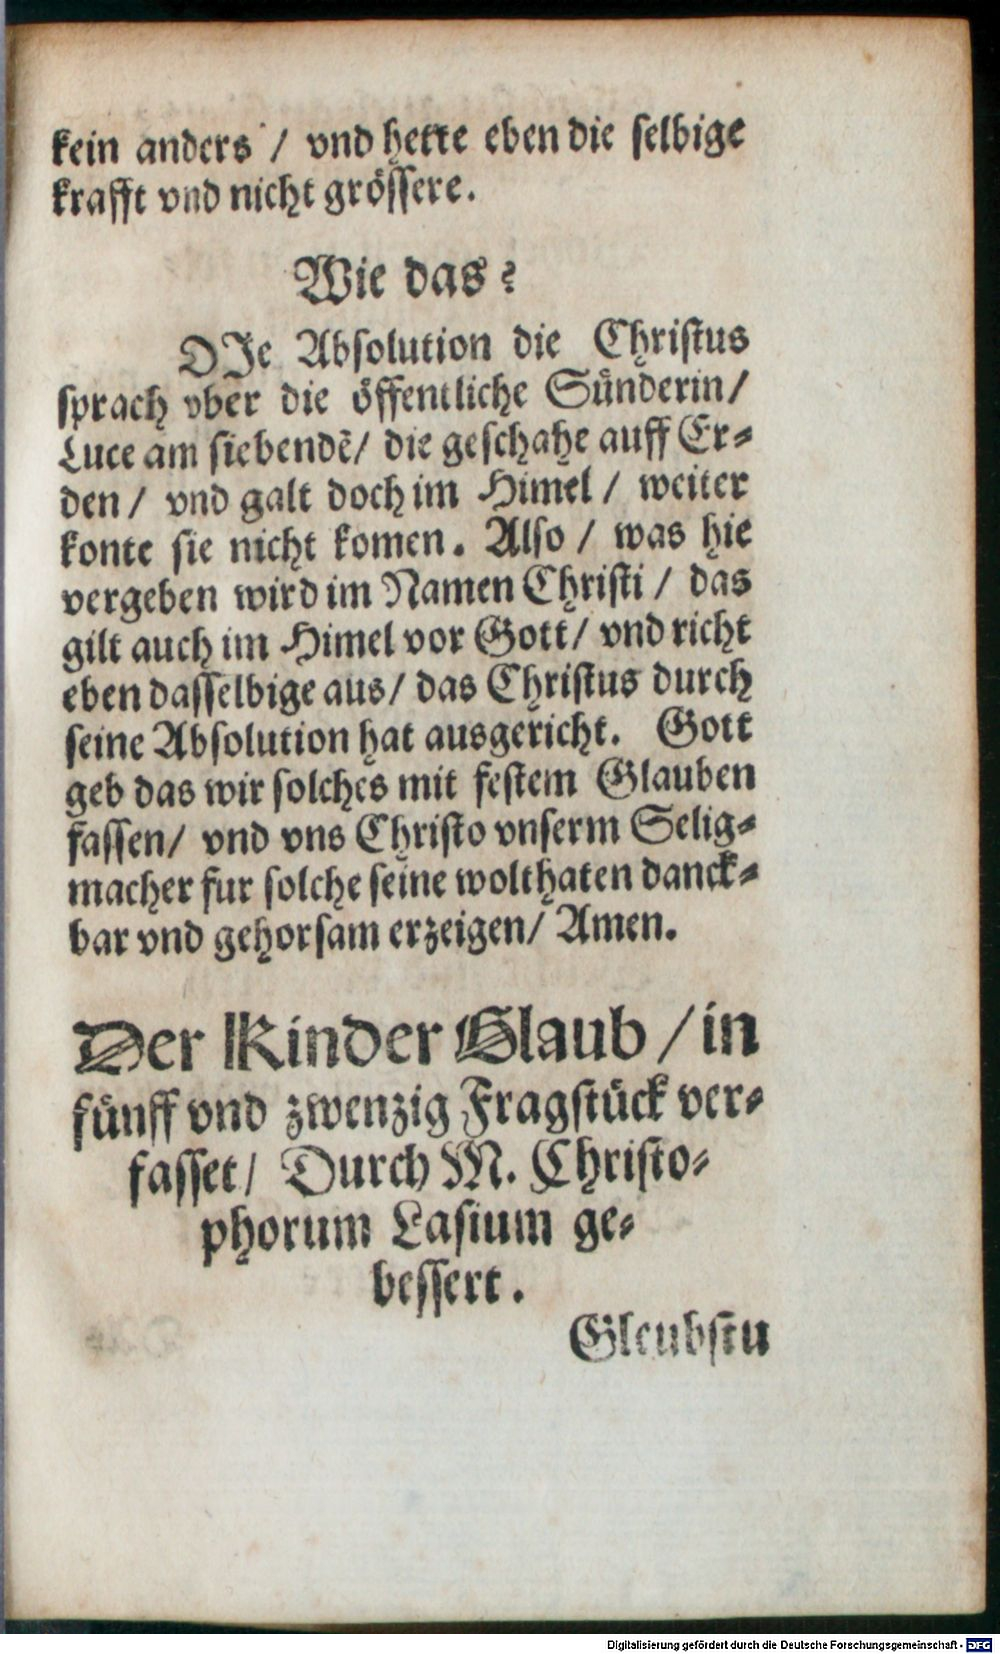 kein anders / vnd hette eben die selbige
krafft vnd nicht grössere.
Wie das?
DJe Absolution die Christus
sprach vber die öffentliche Sünderin/
Luce am siebendẽ/ die geschahe auff Er-
den / vnd galt doch im Himel / weiter
konte sie nicht komen. Also / was hie
vergeben wird im Namen Christi / das
gilt auch im Himel vor Gott/ vnd richt
eben dasselbige aus/ das Christus durch
seine Absolution hat ausgericht. Gott
geb das wir solches mit festem Glauben
fassen/ vnd vns Christo vnserm Selig-
macher fur solche seine wolthaten danck-
bar vnd gehorsam erzeigen/ Amen.
Der Kinder Glaub / in
fünff vnd zwenzig Fragstück ver-
fasset/ Durch M. Christo-
phorum Lasium ge-
bessert.
Gleubstu
Digitalisierung gefördert durch die Deutsche Forschungsgemeinschaft - DFG